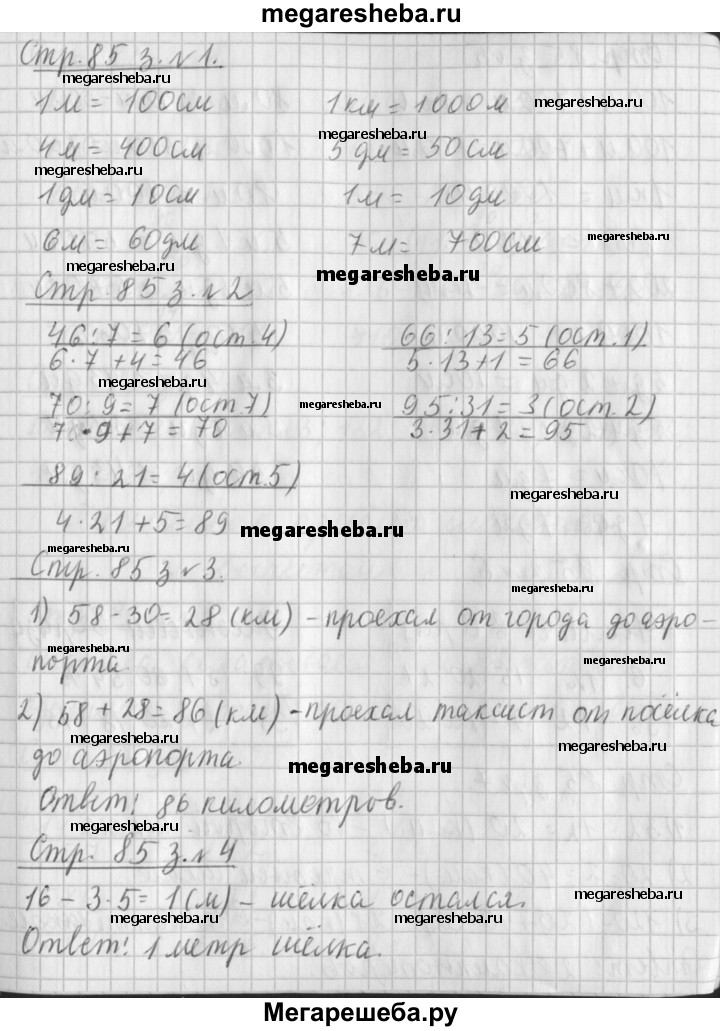 megaresheba.ru
Стр. 85 з. №1.
megaresheba.ru
1м = 100см 1км = 1000м megaresheba.ru
megaresheba.ru
4м = 400см 5 дм = 50см
megaresheba.ru
1дм = 10см 1м = 10дм
6м = 60дм 7м = 700см megaresheba.ru
megaresheba.ru megaresheba.ru
Стр. 85 з. №2
46:7 = 6 (ост. 4) 66:13 = 5 (ост. 1)
6·7+4 = 46 5·13+1 = 66
megaresheba.ru
70:9 = 7 (ост. 7) megaresheba.ru 95:31 = 3 (ост. 2)
7·9+7 = 70 3·31+2 = 95
89:21 = 4 (ост. 5)
megaresheba.ru
4·21+5 = 89 megaresheba.ru
megaresheba.ru
Стр. 85 з №3.
megaresheba.ru
1) 58-30 = 28 (км) - проехал от города до аэро-
megaresheba.ru
порта. megaresheba.ru
2) 58 + 28 = 86 (км) - проехал таксист от посёлка
megaresheba.ru megaresheba.ru
до аэропорта. megaresheba.ru
Ответ: 86 километров.
megaresheba.ru
Стр. 85 з. №4
16 - 3·5 = 1 (м) - шёлка остался. megaresheba.ru
megaresheba.ru megaresheba.ru
Ответ: 1 метр шёлка.
Мегарешеба.ру